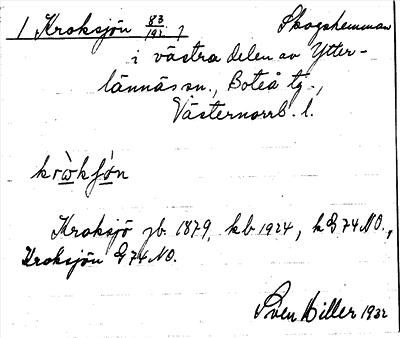 1 Kroksjön 83/192, Skogshemman
i västra delen av Ytter-
lännäs sn., Boteå tg.,
Västernorrl. l.
kròkʃǿn
Kroksjö jb. 1879, kb 1924, kG 74 NO.,
Kroksjön G 74 NO.
Sven Hiller 1932